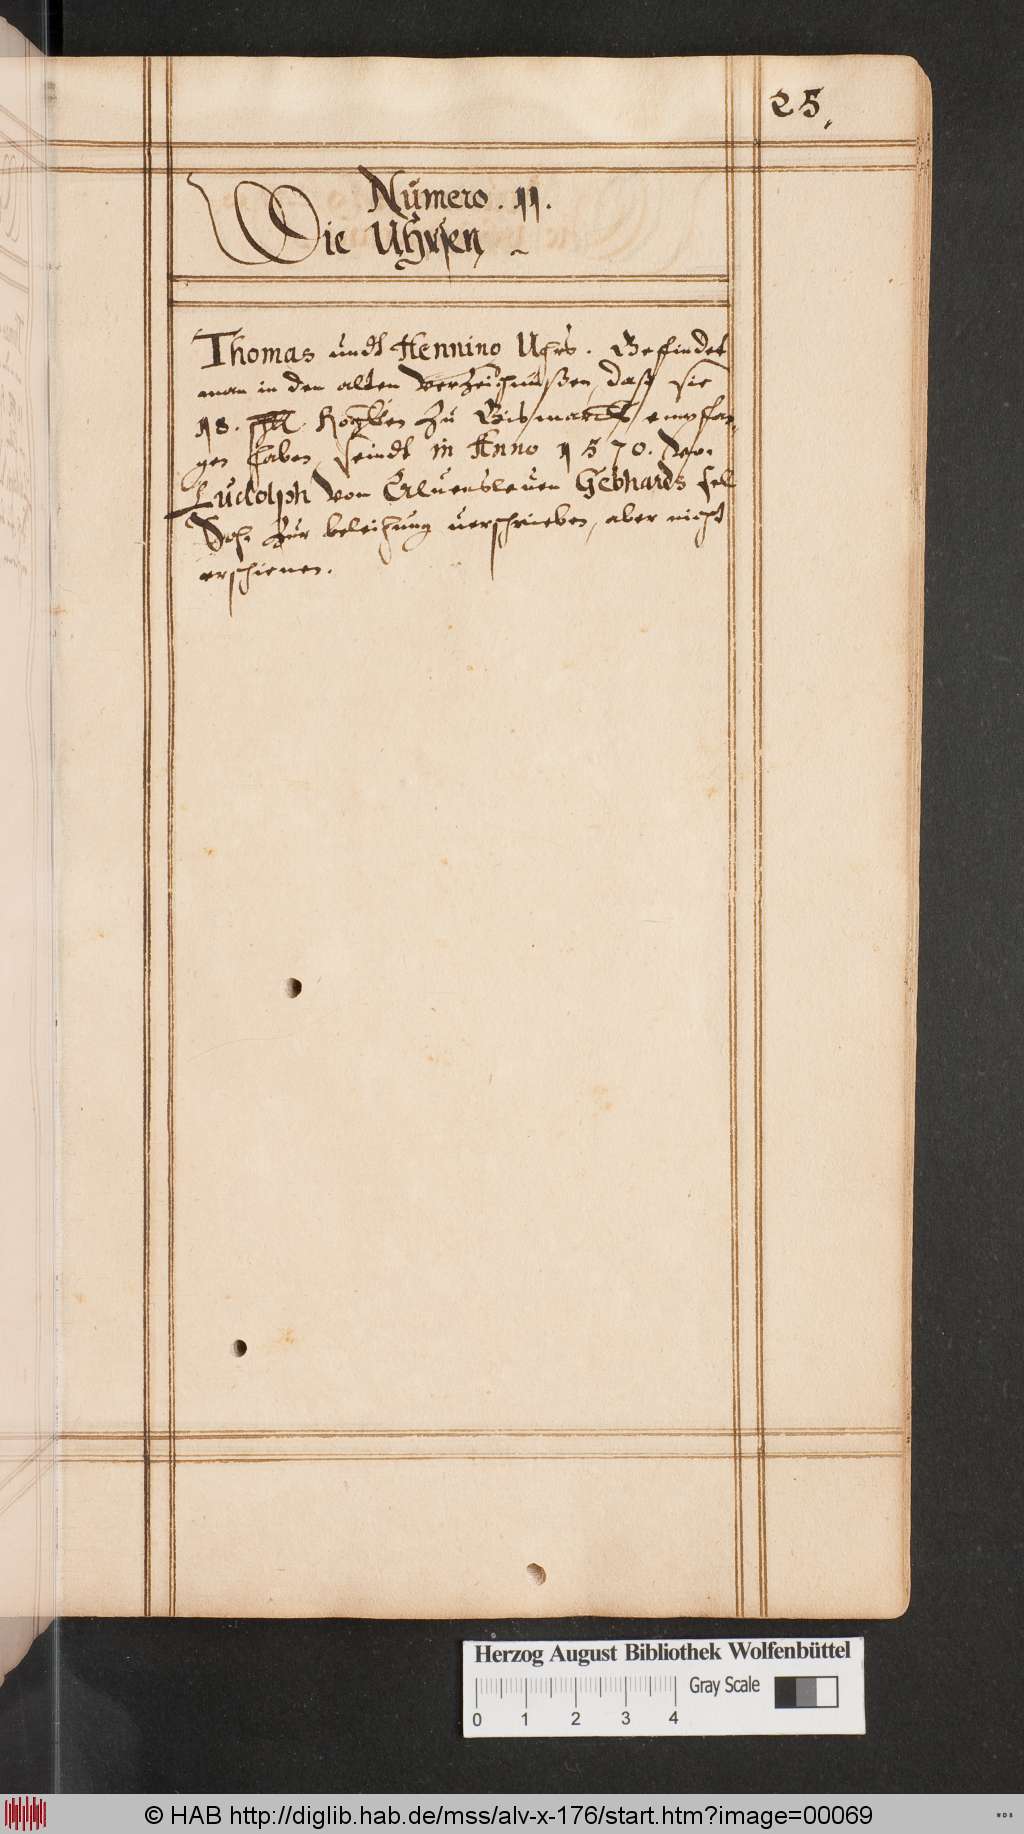 25,
Numero. 11.
Die Uhrsen
Thomas undt Henning Uhrs. Befindet
man in den alten Verzeichnüßen, daß sie
18. Rogken zu Bismarck empfan-
gen haben, seindt in Anno 1570. von
Ludolph von Alvensleven Gebhards sel
Sohn zur beleihung verschrieben, aber nicht
erschienen.
Herzog August Bibliothek Wolfenbüttel
Gray Scale
0 1 2 3 4
© HAB http://diglib.hab.de/mss/alv-x-176/start.htm?image=00069